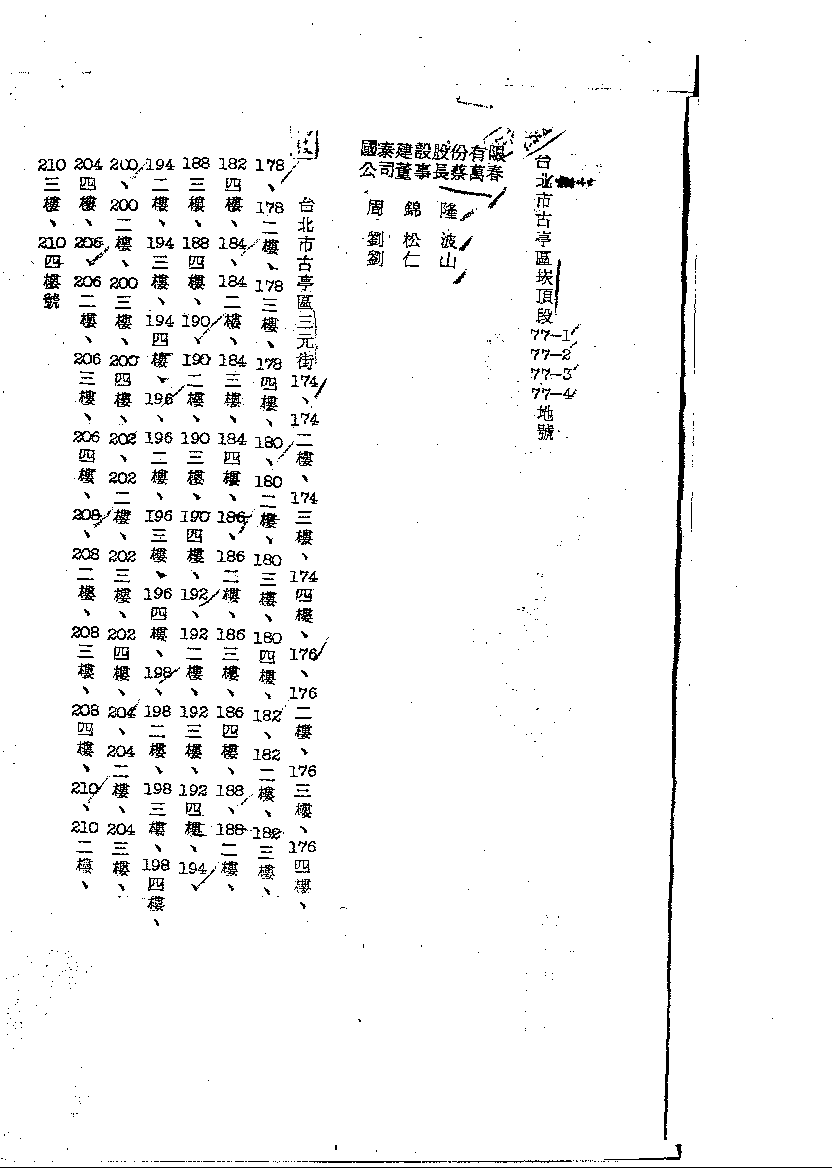 台北市古亭區崁頂段77-1 77-2 77-3 77-4地號
國泰建設股份有限
公司董事長蔡萬春
周錦隆
劉松波
劉仁山
台北市古亭區三元街174、174二樓、174三樓、174四樓、176、176二樓、176三樓、176四樓、
178、178二樓、178三樓、178四樓、180、180二樓、180三樓、180四樓、182、182二樓、182三樓、
182四樓、184、184二樓、184三樓、184四樓、186、186二樓、186三樓、186四樓、188、188二樓、
188三樓、188四樓、190、190二樓、190三樓、190四樓、192、192二樓、192三樓、192四樓、194、
194二樓、194三樓、194四樓、196、196二樓、196三樓、196四樓、198、198二樓、198三樓、198四樓、
200、200二樓、200三樓、200四樓、202、202二樓、202三樓、202四樓、204、204二樓、204三樓、
204四樓、206、206二樓、206三樓、206四樓、208、208二樓、208三樓、208四樓、210、210二樓、
210三樓、210四樓號